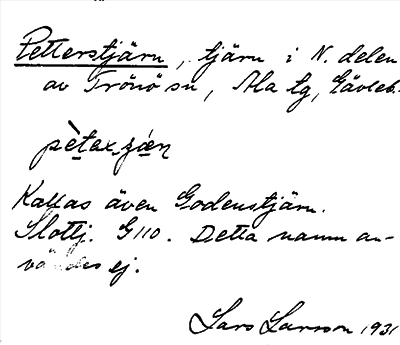 Petterstjärn, tjärn i N. delen
av Trönö sn, Ala tg, Gävleb.
Kallas även Godenstjärn.
Slottj. G110. Detta namn an-
vändes ej.
Lars Larsson 1931